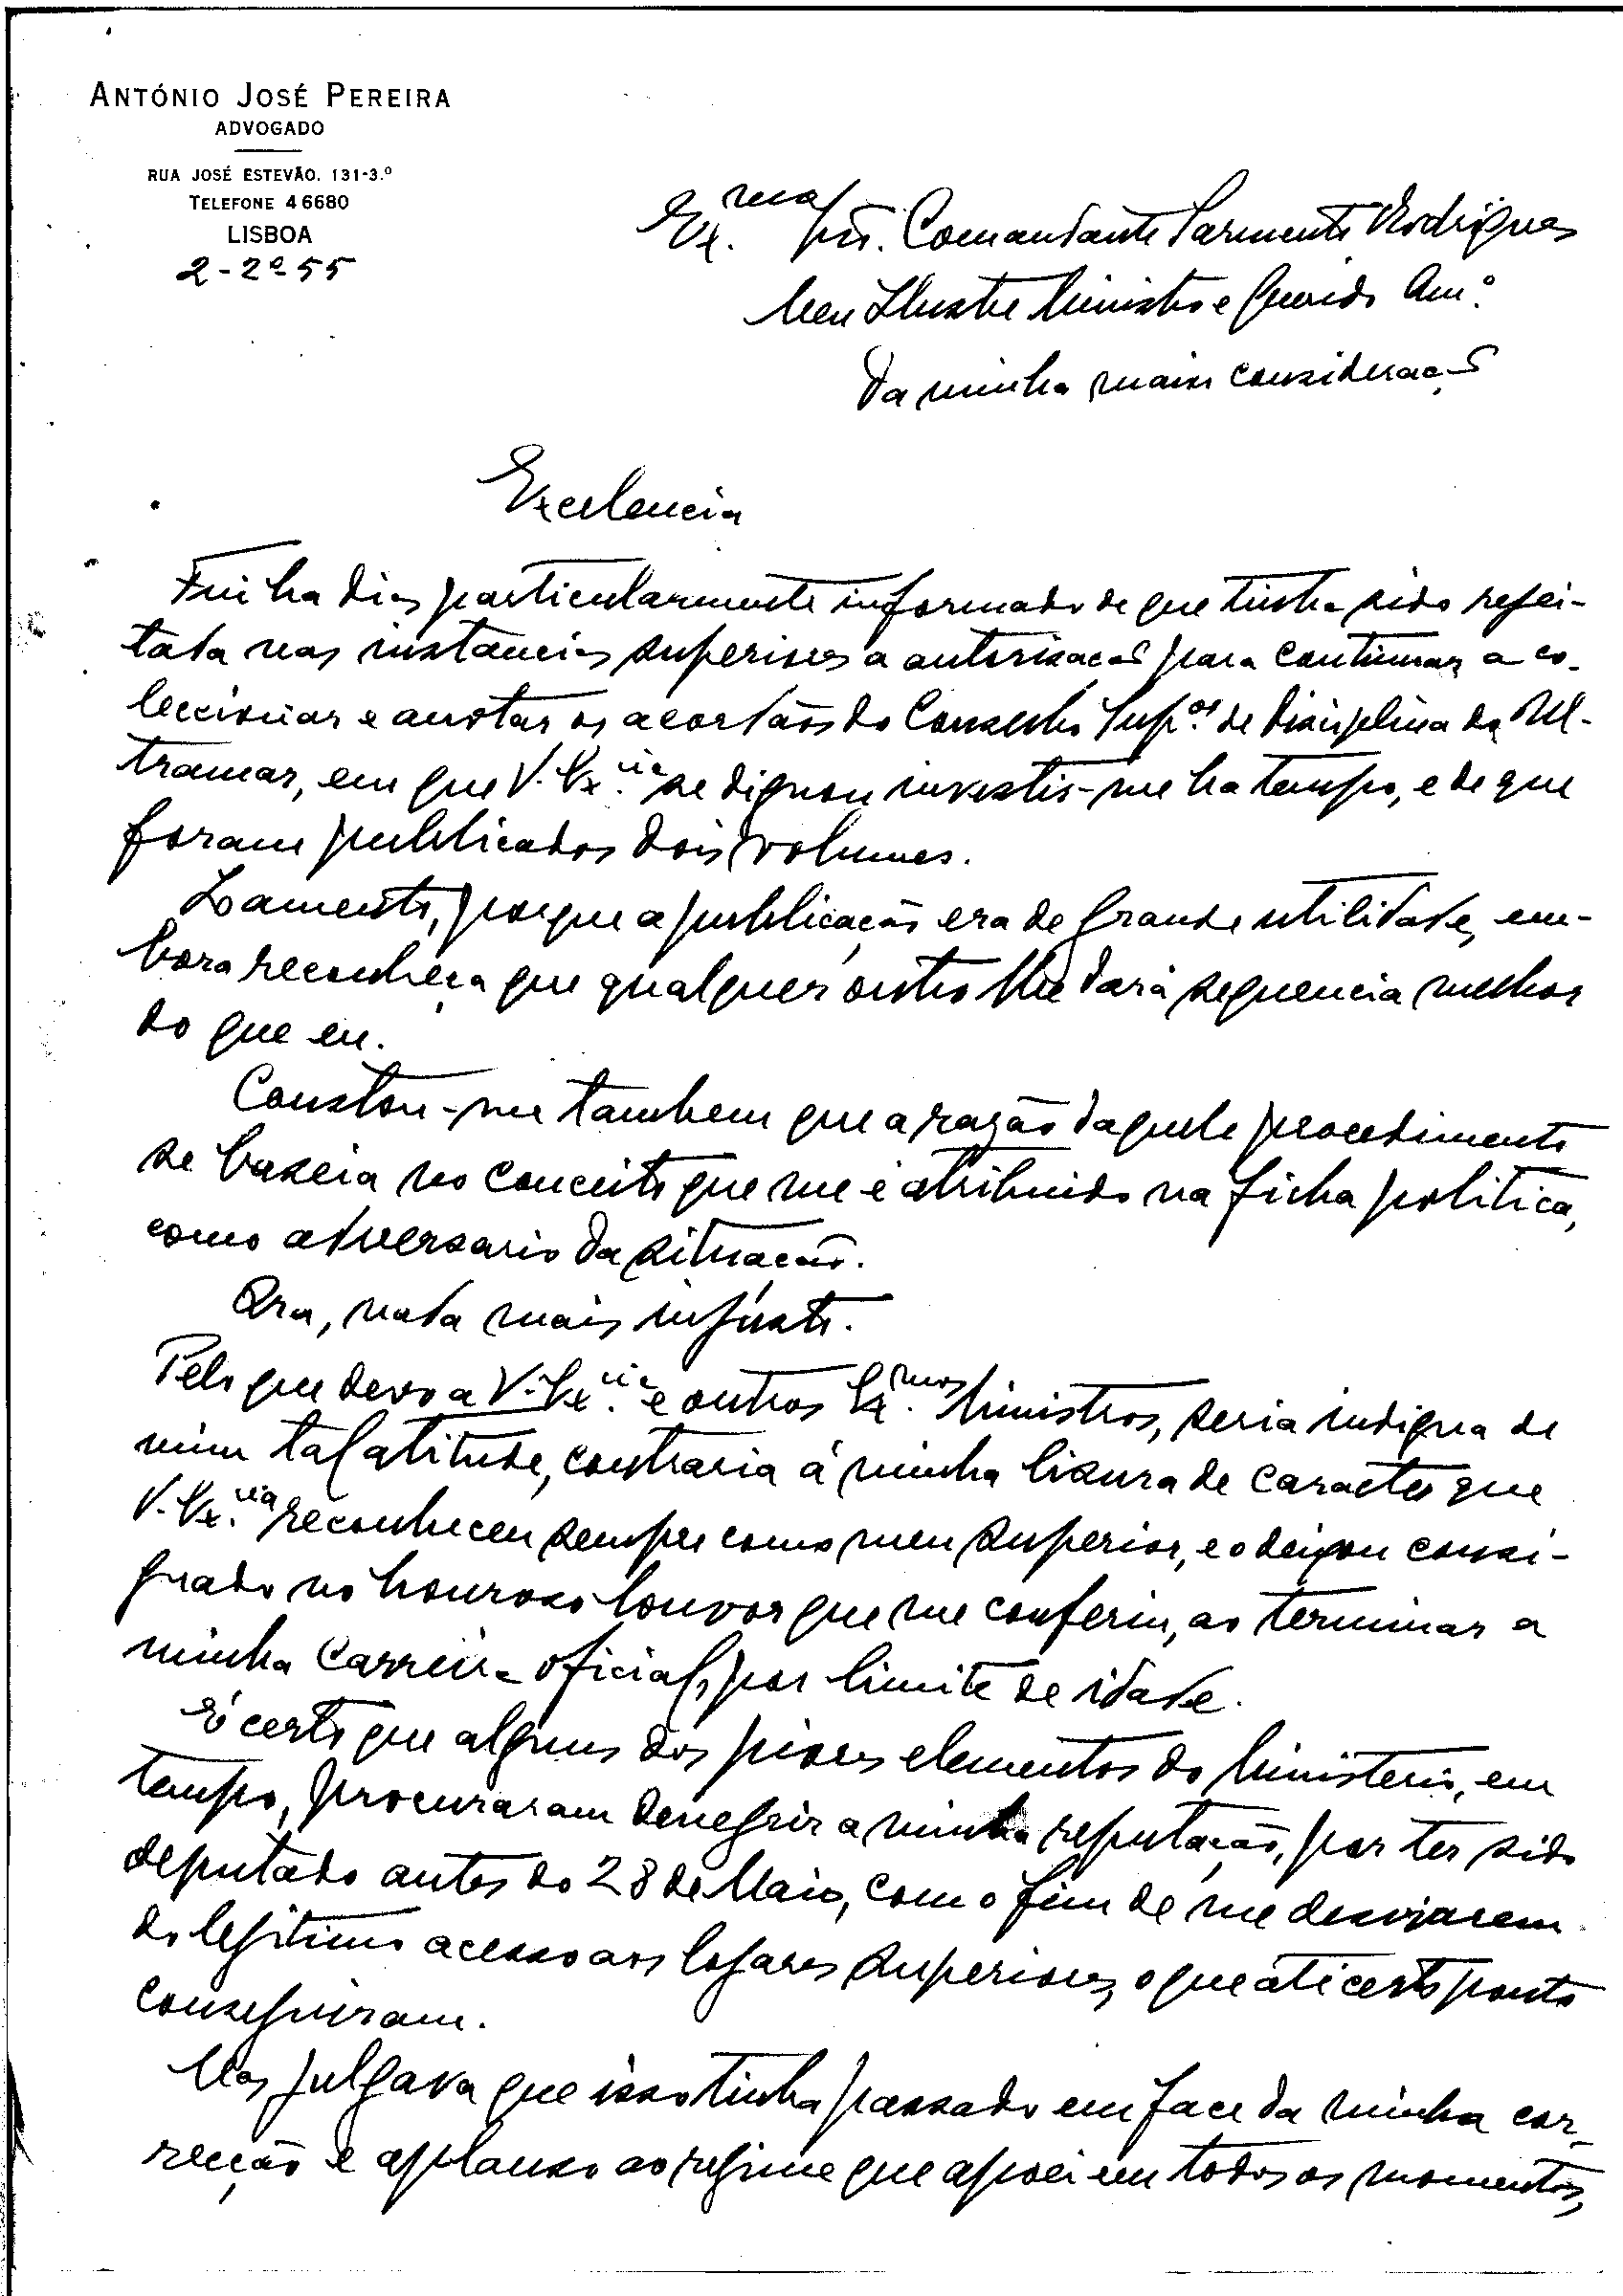 ANTÓNIO JOSÉ PEREIRA
ADVOGADO
RUA JOSÉ ESTEVÃO, 131-3.º
TELEFONE 46680
LISBOA
2-2º-55
Ex.mo Sñr. Comandante Sarmento Rodrigues
Meu Ilustre Ministro e Querido Am.º
Da minha maior consideração
Excelencia
Fui ha dias particularmente informado de que tinha sido rejei-
tada nas instancias superiores a autorisação para continuar a co-
leccionar e anotar os acordãos do Conselho Sup.or de Disciplina do Ul-
tramar, em que V. Ex.cia se dignou investir-me ha tempo, e de que
foram publicados dois volumes.
Lamento, porque a publicação era de grande utilidade, em-
bora reconheça que qualquer outro lhe dará sequencia melhor
do que eu.
Constou-me tambem que a razão daquele procedimento
se baseia no conceito que me é atribuido na ficha politica,
como adversario da situação.
Ora, nada mais injusto.
Pelo que devo a V. Ex.cia e outros Ex.mos Ministros, seria indigna de
mim tal atitude, contraria á minha lisura de caracter que
V. Ex.cia reconheceu sempre como meu superior, e o deixou consi-
gnado no honroso louvor que me conferiu, ao terminar a
minha carreira oficial, por limite de idade.
É certo que alguns dos piores elementos do Ministerio, em
tempo, procuraram denegrir a minha reputação, por ter sido
deputado antes do 28 de Maio, com o fim de me desviarem
do legitimo acesso aos logares superiores, o que até certo ponto
conseguiram.
Mas julgava que isso tinha passado em face da minha cor-
recção e aplauso ao regime que apoiei em todos os momentos,